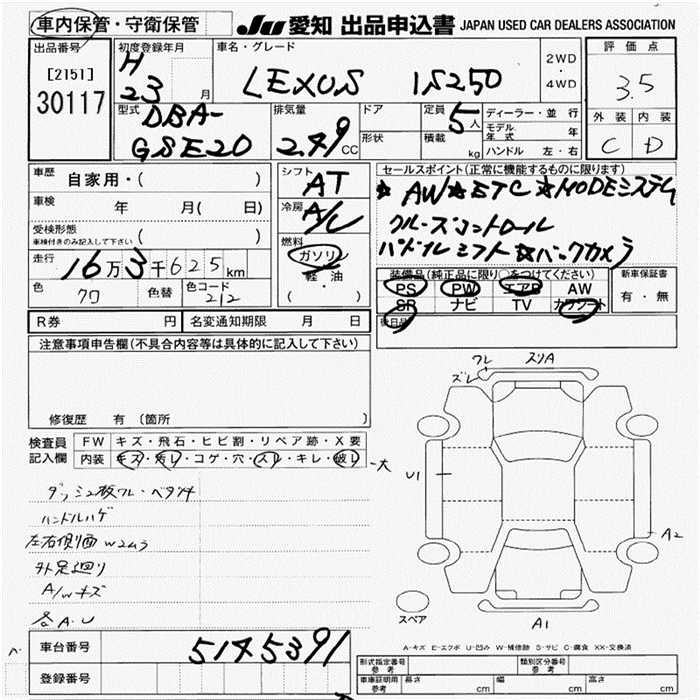 車内保管・守衛保管
JU 愛知 出品申込書 JAPAN USED CAR DEALERS ASSOCIATION
出品番号
[2151]
30117
初度登録年月
H
23 月
車名・グレード
LEXUS IS250
2WD
・
4WD
評価点
3.5
外装 内装
C D
型式
DBA-
GSE20
排気量
2.49 CC
ドア
形状
定員
5人
積載
kg
ディーラー・並行
モデル年式 年
ハンドル 左・右
車歴 自家用・( )
車検 年 月( 日)
受検形態
車検付きのみ記入して下さい ( )
走行 16万3千625km
色 クロ 色替 色コード 212
シフト
AT
冷房
A/C
燃料
ガソリン
軽油
( ・ )
セールスポイント(正常に機能するものに限ります)
★AW★ETC★HDDEシステム
クルーズコントロール
パドルシフト★バックカメラ
装備品(純正品に限り○をつけてください)
PS PW エアB AW
SR ナビ TV カワシート
新車保証書
有・無
後日品
R券 円 名変通知期限 月 日
注意事項申告欄(不具合内容等は具体的に記入して下さい)
修復歴 有 〔箇所 〕
検査員 FW キズ・飛石・ヒビ割・リペア跡・X要
記入欄 内装 キズ・汚レ・コゲ・穴・スレ・キレ・破レ -大
ダッシュ板ワレ・ベタツキ
ハンドルハゲ
左右側面Wコムラ
外足廻り
A/Wキズ
各A・U
ワレ
ズレ
スリA
U1
A2
A1
スペア
A-キズ E-エクボ U-凹み W-補修跡 S-サビ C-腐食 XX-交換済
車台番号 5145391
登録番号
形式指定番号 参考
類別区分番号 参考
車庫証明用 参考 長さ cm 幅 cm 高さ cm